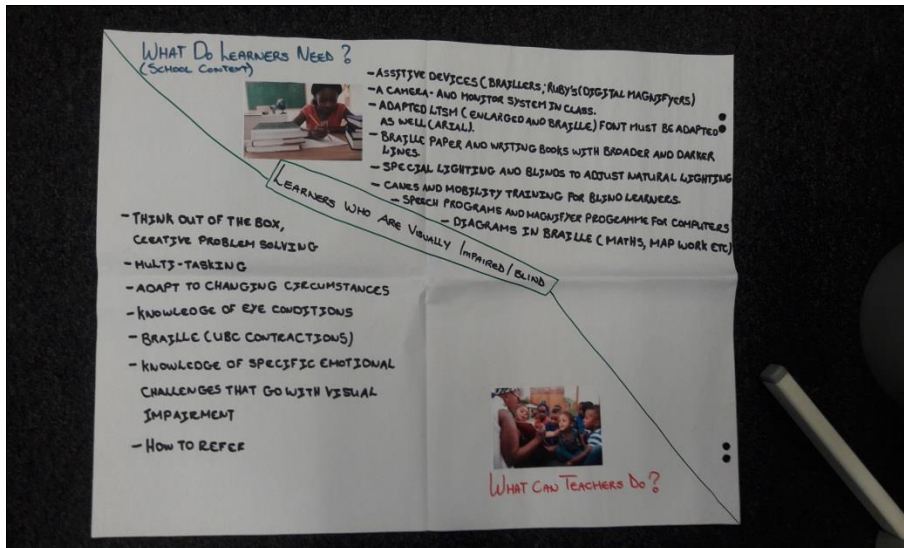 WHAT DO LEARNERS NEED?
(SCHOOL CONTEXT)
- ASSITIVE DEVICES (BRAILLERS; RUBY'S (DIGITAL MAGNIFYERS)
- A CAMERA- AND MONITOR SYSTEM IN CLASS.
- ADAPTED LTSM (ENLARGED AND BRAILLE) FONT MUST BE ADAPTED
AS WELL (ARIAL).
- BRAILLE PAPER AND WRITING BOOKS WITH BROADER AND DARKER
LINES.
- SPECIAL LIGHTING AND BLINDS TO ADJUST NATURAL LIGHTING
- CANES AND MOBILITY TRAINING FOR BLIND LEARNERS.
- SPEECH PROGRAMS AND MAGNIFYER PROGRAMME FOR COMPUTERS
- DIAGRAMS IN BRAILLE (MATHS, MAP WORK ETC)
LEARNERS WHO ARE VISUALLY IMPAIRED/BLIND
- THINK OUT OF THE BOX,
CREATIVE PROBLEM SOLVING
- MULTI-TASKING
- ADAPT TO CHANGING CIRCUMSTANCES
- KNOWLEDGE OF EYE CONDITIONS
- BRAILLE (UBC CONTRACTIONS)
- KNOWLEDGE OF SPECIFIC EMOTIONAL
CHALLENGES THAT GO WITH VISUAL
IMPAIRMENT
- HOW TO REFER
WHAT CAN TEACHERS DO?